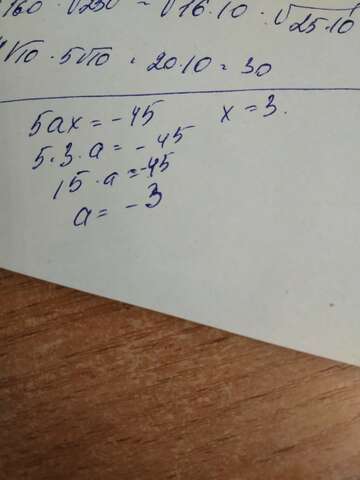 √160 · √250 = √16·10 · √25·10
4√10 · 5√10 = 20·10 = 30
5ax = -45 x = 3.
5·3·a = -45
15·a = -45
a = -3